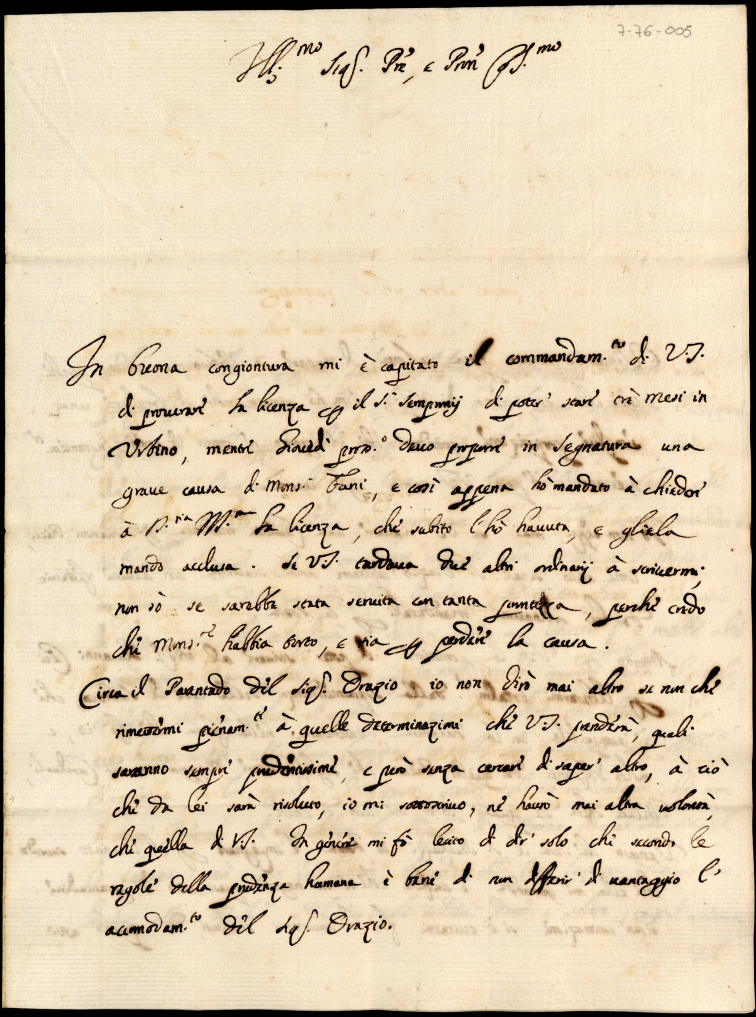 7-76-005
Ill.mo Sig.r Pre, e Pron
In buona congiontura mi è capitato il commandam.to di V.S.
di procurare la licenza il S.r Sempronij di poter stare trè mesi in
Urbino, mentre Giovedì pross.o devo proporre in Segnatura una
grave causa di Mons.r Fani, e così appena hò mandato à chieder
à la licenza, che subito l'hò havuta, e gliela
mando acclusa. Se V.S. tardava due altri ordinarij à scrivermi,
non sò se sarebbe stata servita con tanta prontezza, perche credo
che Mons.re habbia torto, e sia perdere la causa.
Circa il Parentado del Sig.r Orazio io non dirò mai altro se non che
rimettermi pienam.te à quelle determinazioni che V.S. prenderà, quali
saranno sempre prudentissime, e però senza cercare di saper altro, à ciò
che da lei sarà risoluto, io mi sottoscrivo, nè haurò mai altra volontà,
che quella di V.S. In genere mi fò lecito di dir solo che secondo le
regole della prudenza humana è bene di non differir di vantaggio l'
accomodam.to del Sig.r Orazio.